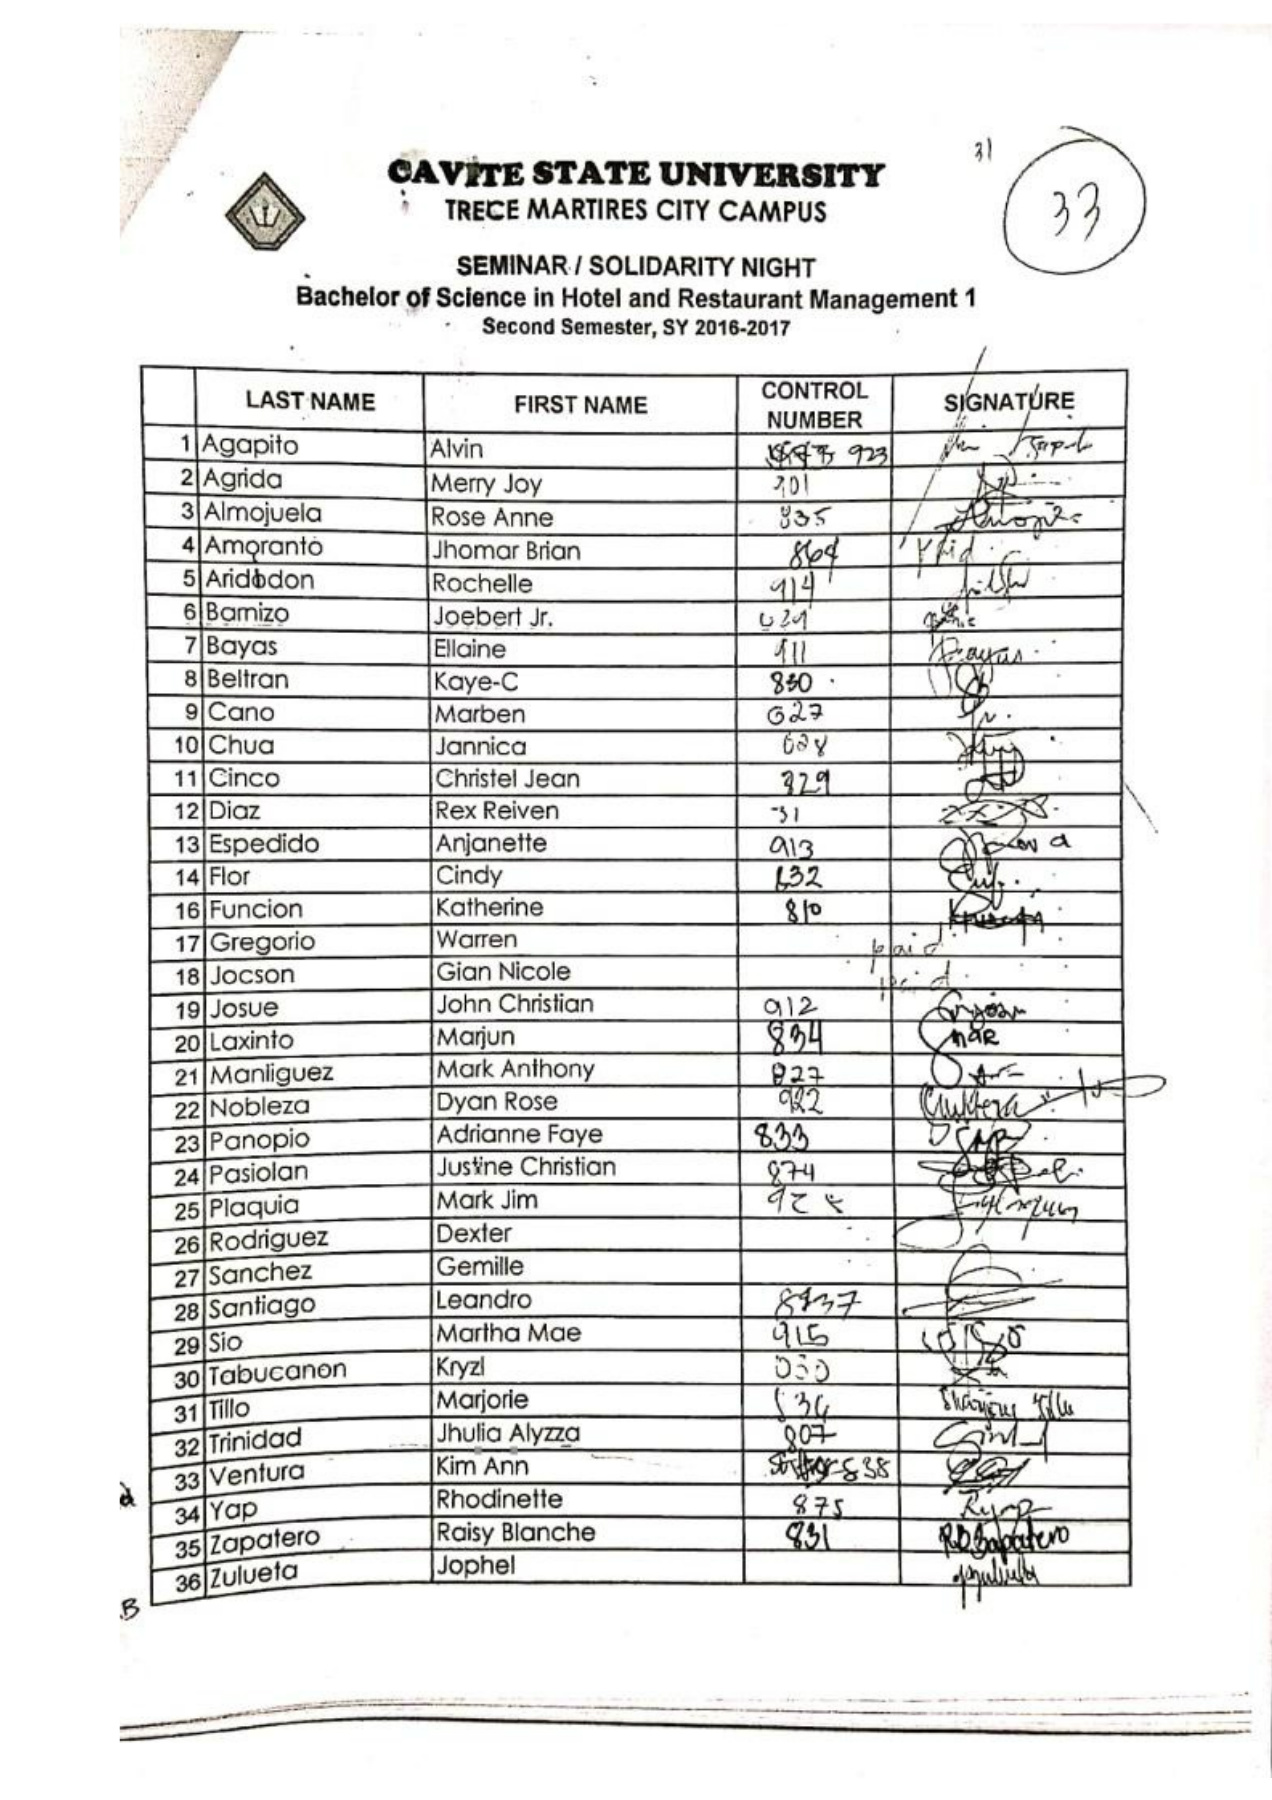 31
33
CAVITE STATE UNIVERSITY
TRECE MARTIRES CITY CAMPUS
SEMINAR / SOLIDARITY NIGHT
Bachelor of Science in Hotel and Restaurant Management 1
Second Semester, SY 2016-2017
LAST NAME FIRST NAME CONTROL NUMBER SIGNATURE
1 Agapito Alvin 923
2 Agrida Merry Joy 901
3 Almojuela Rose Anne 835
4 Amoranto Jhomar Brian 864 Paid
5 Aridodon Rochelle 914
6 Barnizo Joebert Jr.
7 Bayas Ellaine 911 Bayas
8 Beltran Kaye-C 830
9 Cano Marben 627
10 Chua Jannica 628
11 Cinco Christel Jean 829
12 Diaz Rex Reiven 31
13 Espedido Anjanette 913
14 Flor Cindy 632
16 Funcion Katherine 810
17 Gregorio Warren paid
18 Jocson Gian Nicole paid
19 Josue John Christian 912
20 Laxinto Marjun 834 mar
21 Manliguez Mark Anthony 827
22 Nobleza Dyan Rose 922
23 Panopio Adrianne Faye 833
24 Pasiolan Justine Christian 874
25 Plaquia Mark Jim
26 Rodriguez Dexter
27 Sanchez Gemille
28 Santiago Leandro 8937
29 Sio Martha Mae 915
30 Tabucanon Kryzl 030
31 Tillo Marjorie 836
32 Trinidad Jhulia Alyzza 807
33 Ventura Kim Ann 838
34 Yap Rhodinette 875
35 Zapatero Raisy Blanche 831 RBZapatero
36 Zulueta Jophel jzulueta
B